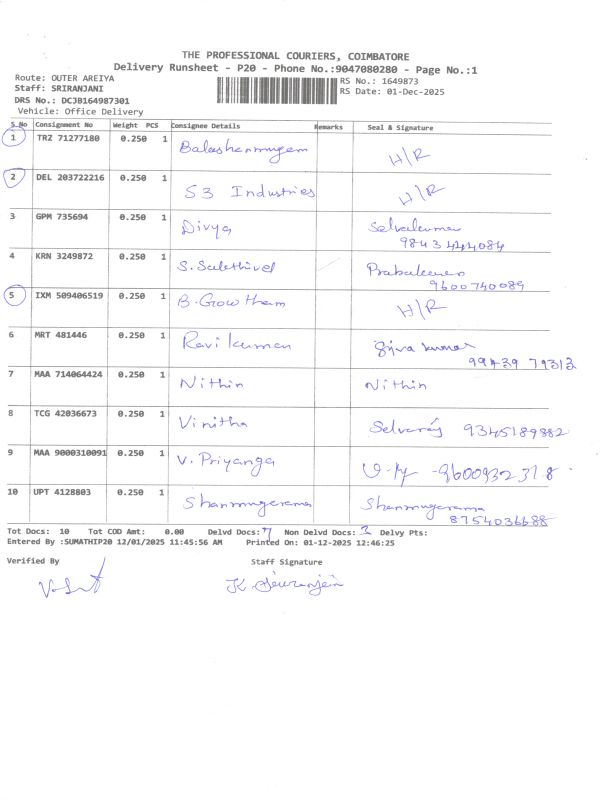 THE PROFESSIONAL COURIERS, COIMBATORE
Delivery Runsheet - P20 - Phone No.:9047080280 - Page No.:1
Route: OUTER AREIYA
RS No.: 1649873
Staff: SRIRANJANI
RS Date: 01-Dec-2025
DRS No.: DCJB164987301
Vehicle: Office Delivery
S.No Consignment No Weight PCS Consignee Details Remarks Seal & Signature
1 TRZ 71277180 0.250 1 Balashanmugam H/R
2 DEL 203722216 0.250 1 S3 Industries H/R
3 GPM 735694 0.250 1 Divya Selvakumar
9843444084
4 KRN 3249872 0.250 1 S. Sakthivel Prabakaran
9600740089
5 IXM 509406519 0.250 1 B. Gowtham H/R
6 MRT 481446 0.250 1 Ravi kumar Siva kumar
99439 79312
7 MAA 714064424 0.250 1 Nithin Nithin
8 TCG 42036673 0.250 1 Vinitha Selvaraj 9345189882
9 MAA 9000310091 0.250 1 V. Priyanga -9600932318
10 UPT 4128803 0.250 1 Shanmugarama Shanmugarama
8754036688
Tot Docs: 10 Tot COD Amt: 0.00 Delvd Docs: 7 Non Delvd Docs: 3 Delvy Pts:
Entered By :SUMATHIP20 12/01/2025 11:45:56 AM Printed On: 01-12-2025 12:46:25
Verified By Staff Signature